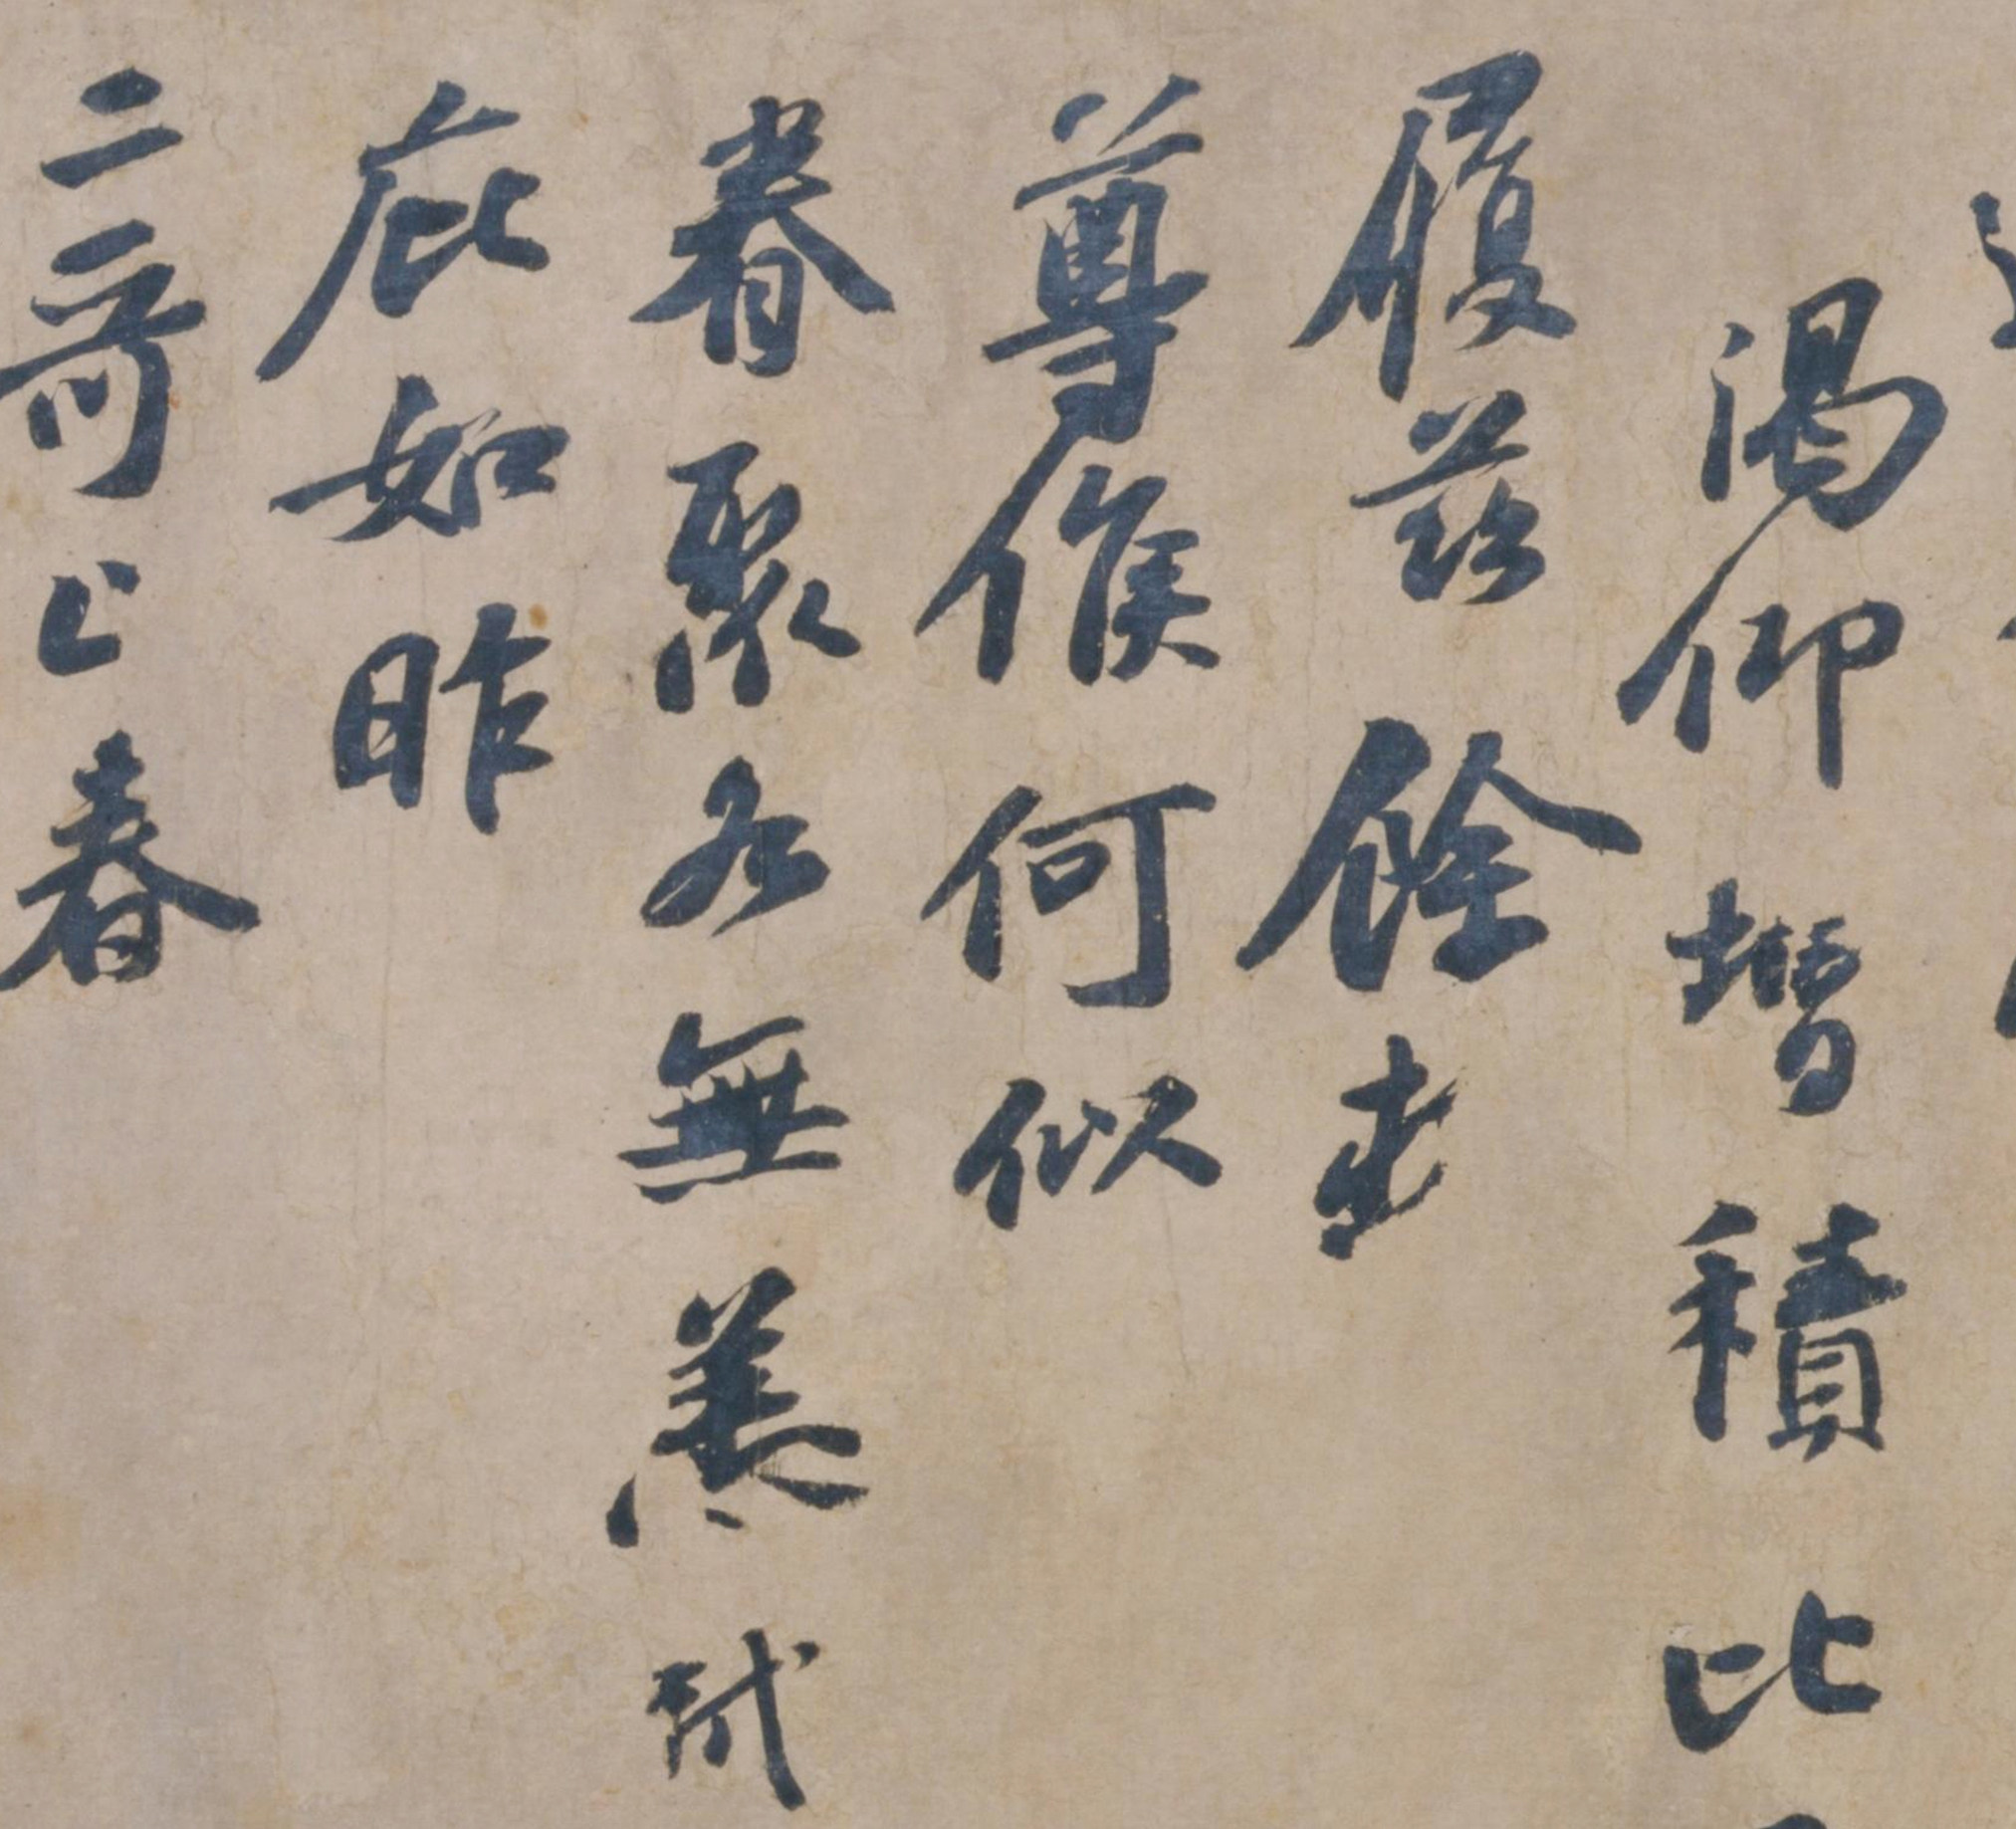 渴仰增積比
履茲餘
尊候何似
眷聚各無恙軾
庇如昨
二哥上春